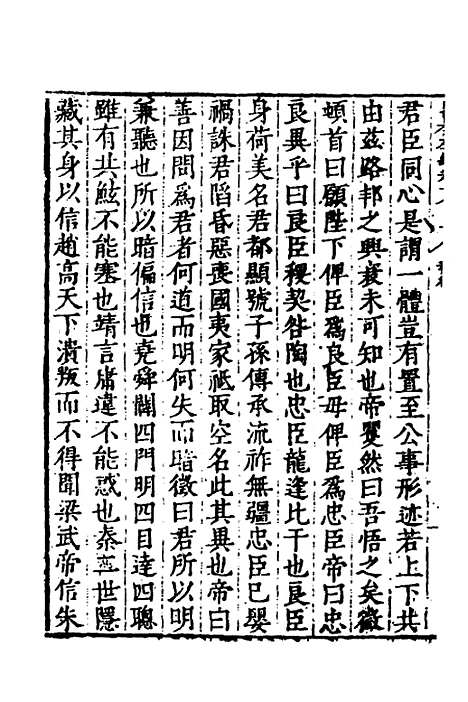 君臣同心是謂一體豈有置至公事形迹若上下共
由茲路邦之興衰未可知也帝矍然曰吾悟之矣徵
頓首曰願陛下俾臣爲良臣毋俾臣爲忠臣帝曰忠
良異乎曰良臣稷契咎陶也忠臣龍逢比干也良臣
身荷美名君都顯號子孫傳承流祚無疆忠臣已嬰
禍誅君陷昏惡喪國夷家祗取空名此其異也帝曰
善因問爲君者何道而明何失而暗徵曰君所以明
兼聽也所以暗偏信也堯舜闢四門明四目達四聰
雖有共鯀不能塞也靖言庸違不能惑也秦二世隱
藏其身以信趙高天下潰叛而不得聞梁武帝信朱